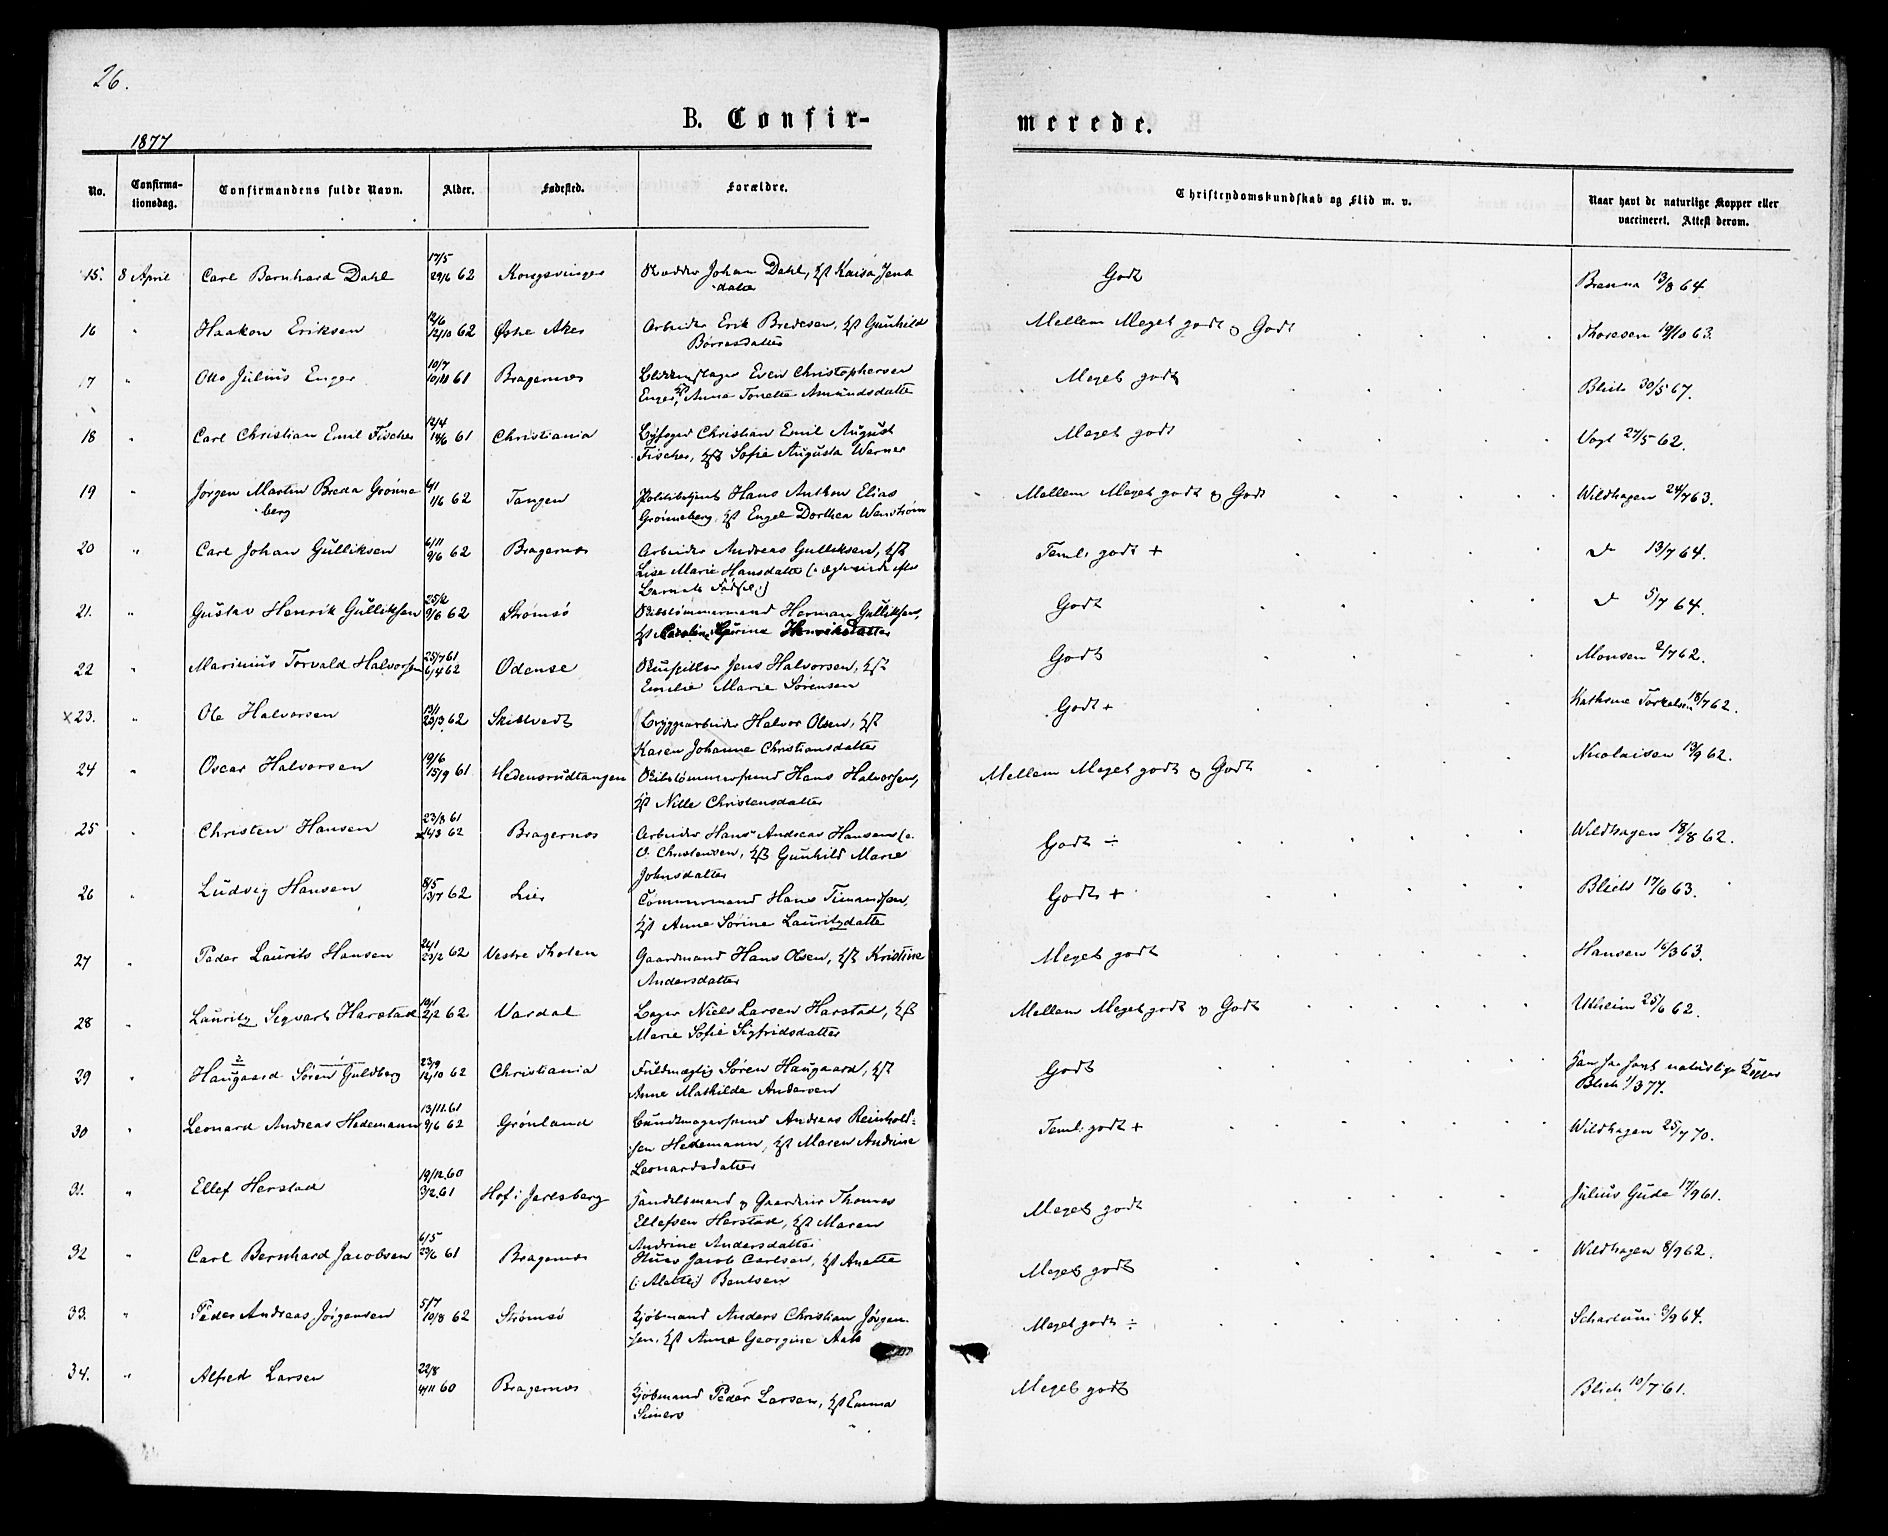 26.
B. Confir-
merede.
1877
No. Confirma-tionsdag. Confirmandens fulde Navn. Alder. Fødested. Forældre. Christendomskundskab og Flid m. v. Naar havt de naturlige Kopper eller vaccineret. Attest derom.
15. 8 April Carl Bernhard Dahl 17/5 29/6 62 Kongsvinger Johan Dahl, Hst Kaisa Jens Godt 13/8 64.
datter
16 " Haakon Eriksen 12/6 12/10 62 Østre Aker Arbeider Erik Bredesen, Hst Gunhild Mellem Meget godt og Godt Thoresen 19/10 63.
Børresdatter
17 " Otto Julius Enger 10/7 10/11 61 Bragernes Blikkenslager Even Christophersen Meget godt Blich 30/5 67.
Enger, Hst Anne Tonette Amundsdatter
18 " Carl Christian Emil Fischer 12/4 14/6 61 Christiania Byfoged Christian Emil August Meget godt Vogt 27/5 62.
Fischer, Hst Sofie Augusta Werner
19 " Jørgen Martin Breda Grønne 1/6 62 Tangen Politibetjent Hans Anthon Elias Mellem Meget godt og Godt Wildhagen 24/7 63.
berg Grønneberg, Hst Engel Dorthea Wenstrøm
20 " Carl Johan Gulliksen 6/11 9/6 62 Bragernes Arbeider Andreas Gulliksen, Hst Teml. godt + d 13/7 64.
Lise Marie Hansdatter (: Ægteviede efter
Barnets Fødsel :)
21. " Gustav Henrik Gulliksen 25/2 9/6 62 Strømsø Skibstømmermand Herman Gulliksen, Godt d 5/7 64.
Hst Caroline Gurine Henriksdatter
22 " Marinius Torvald Halvorsen 25/7 61 6/4 62 Odense Skuespiller Jens Halvorsen, Hst Godt Monsen 2/7 62.
Emilie Marie Sørensen
x 23. " Ole Halvorsen 13/1 23/3 62 Skibtvedt Bryggearbeider Halvor Olsen, Hst Godt + Kathrine Torkelsen 18/7 62.
Karen Johanne Christiansdatter
24 " Oscar Halvorsen 19/6 15/9 61 Hedensrudtangen Skibstømmermand Hans Halvorsen, Mellem Meget godt og Godt Nicolaisen 13/9 62.
Hst Nille Christensdatter
25 " Christen Hansen 23/8 61 14/3 62 Bragernes Arbeider Hans Andreas Hansen (e. Godt ÷ Wildhagen 18/8 62.
O. Christensen, Hst Gunhild Marie
Johnsdatter
26 " Ludvig Hansen 8/5 13/7 62 Lier Tømmermand Hans Timandsen, Godt + Blich 17/6 63.
Hst Anne Sørine Lauritzdatter
27 " Peder Laurits Hansen 24/1 23/2 62 Vestre Thoten Gaardmand Hans Olsen, Hst Kristine Meget godt Hansen 16/3 63.
Andersdatter
28 " Lauritz Sigvart Harstad 19/1 2/2 62 Vardal Bager Niels Larsen Harstad, Hst Mellem Meget godt og Godt Utheim 25/6 62.
Marie Sofie Sigfridsdatter
29 " Haugaard Søren Guldberg 23/9 12/10 62 Christiania Fuldmægtig Søren Haugaard, Hst Godt Han har havt naturlige Kopper
Anne Mathilde Andersen Blich 1/3 77.
30 " Leonard Andreas Hedemann 13/11.61 9/6 62 Grønland Bundtmagersvend Andreas Reinhold- Teml. godt + Wildhagen 25/7 70.
sen Hedemann, Hst Maren Andrine
Leonardsdatter
31. " Ellef Herstad 19/12.60 3/2.61 Hof i Jarlsberg Handelsmand og Gaardeier Thomas Meget godt Julius Gude 17/9 61.
Ellefsen Herstad, Hst Maren
Andrine Andersdatter
32 " Carl Bernhard Jacobsen 6/5 23/6 61 Bragernes Jacob Carlsen, Hst Anette Meget godt Wildhagen 8/9 62.
(: Alette :) Bentsen
33. " Peder Andreas Jørgensen 5/7 10/8 62 Strømsø Kjøbmand Anders Christian Jørgen- Meget godt ÷ Scharlum 6/9 64.
sen, Hst Anne Georgine Aab
34. " Alfred Larsen 22/8 4/11 60 Bragernes Kjøbmand Peder Larsen, Hst Emma Meget godt Blich 10/7 61.
Simers